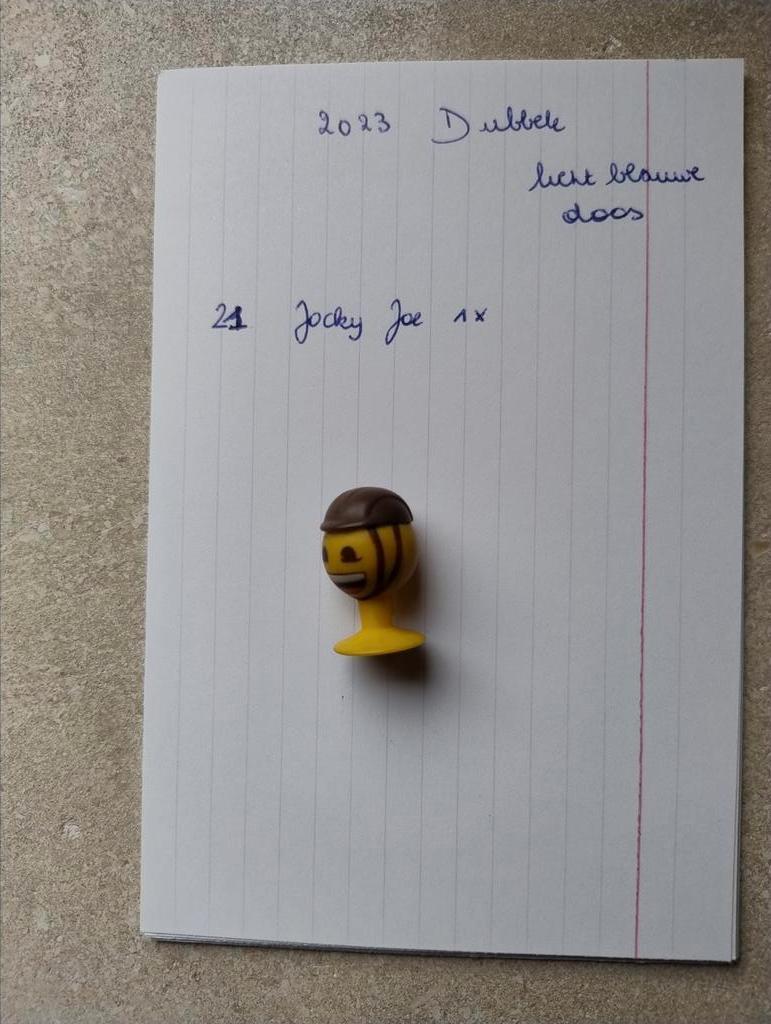 2023 Dubbele
licht blauwe
doos
21 Jocky Joe 1x